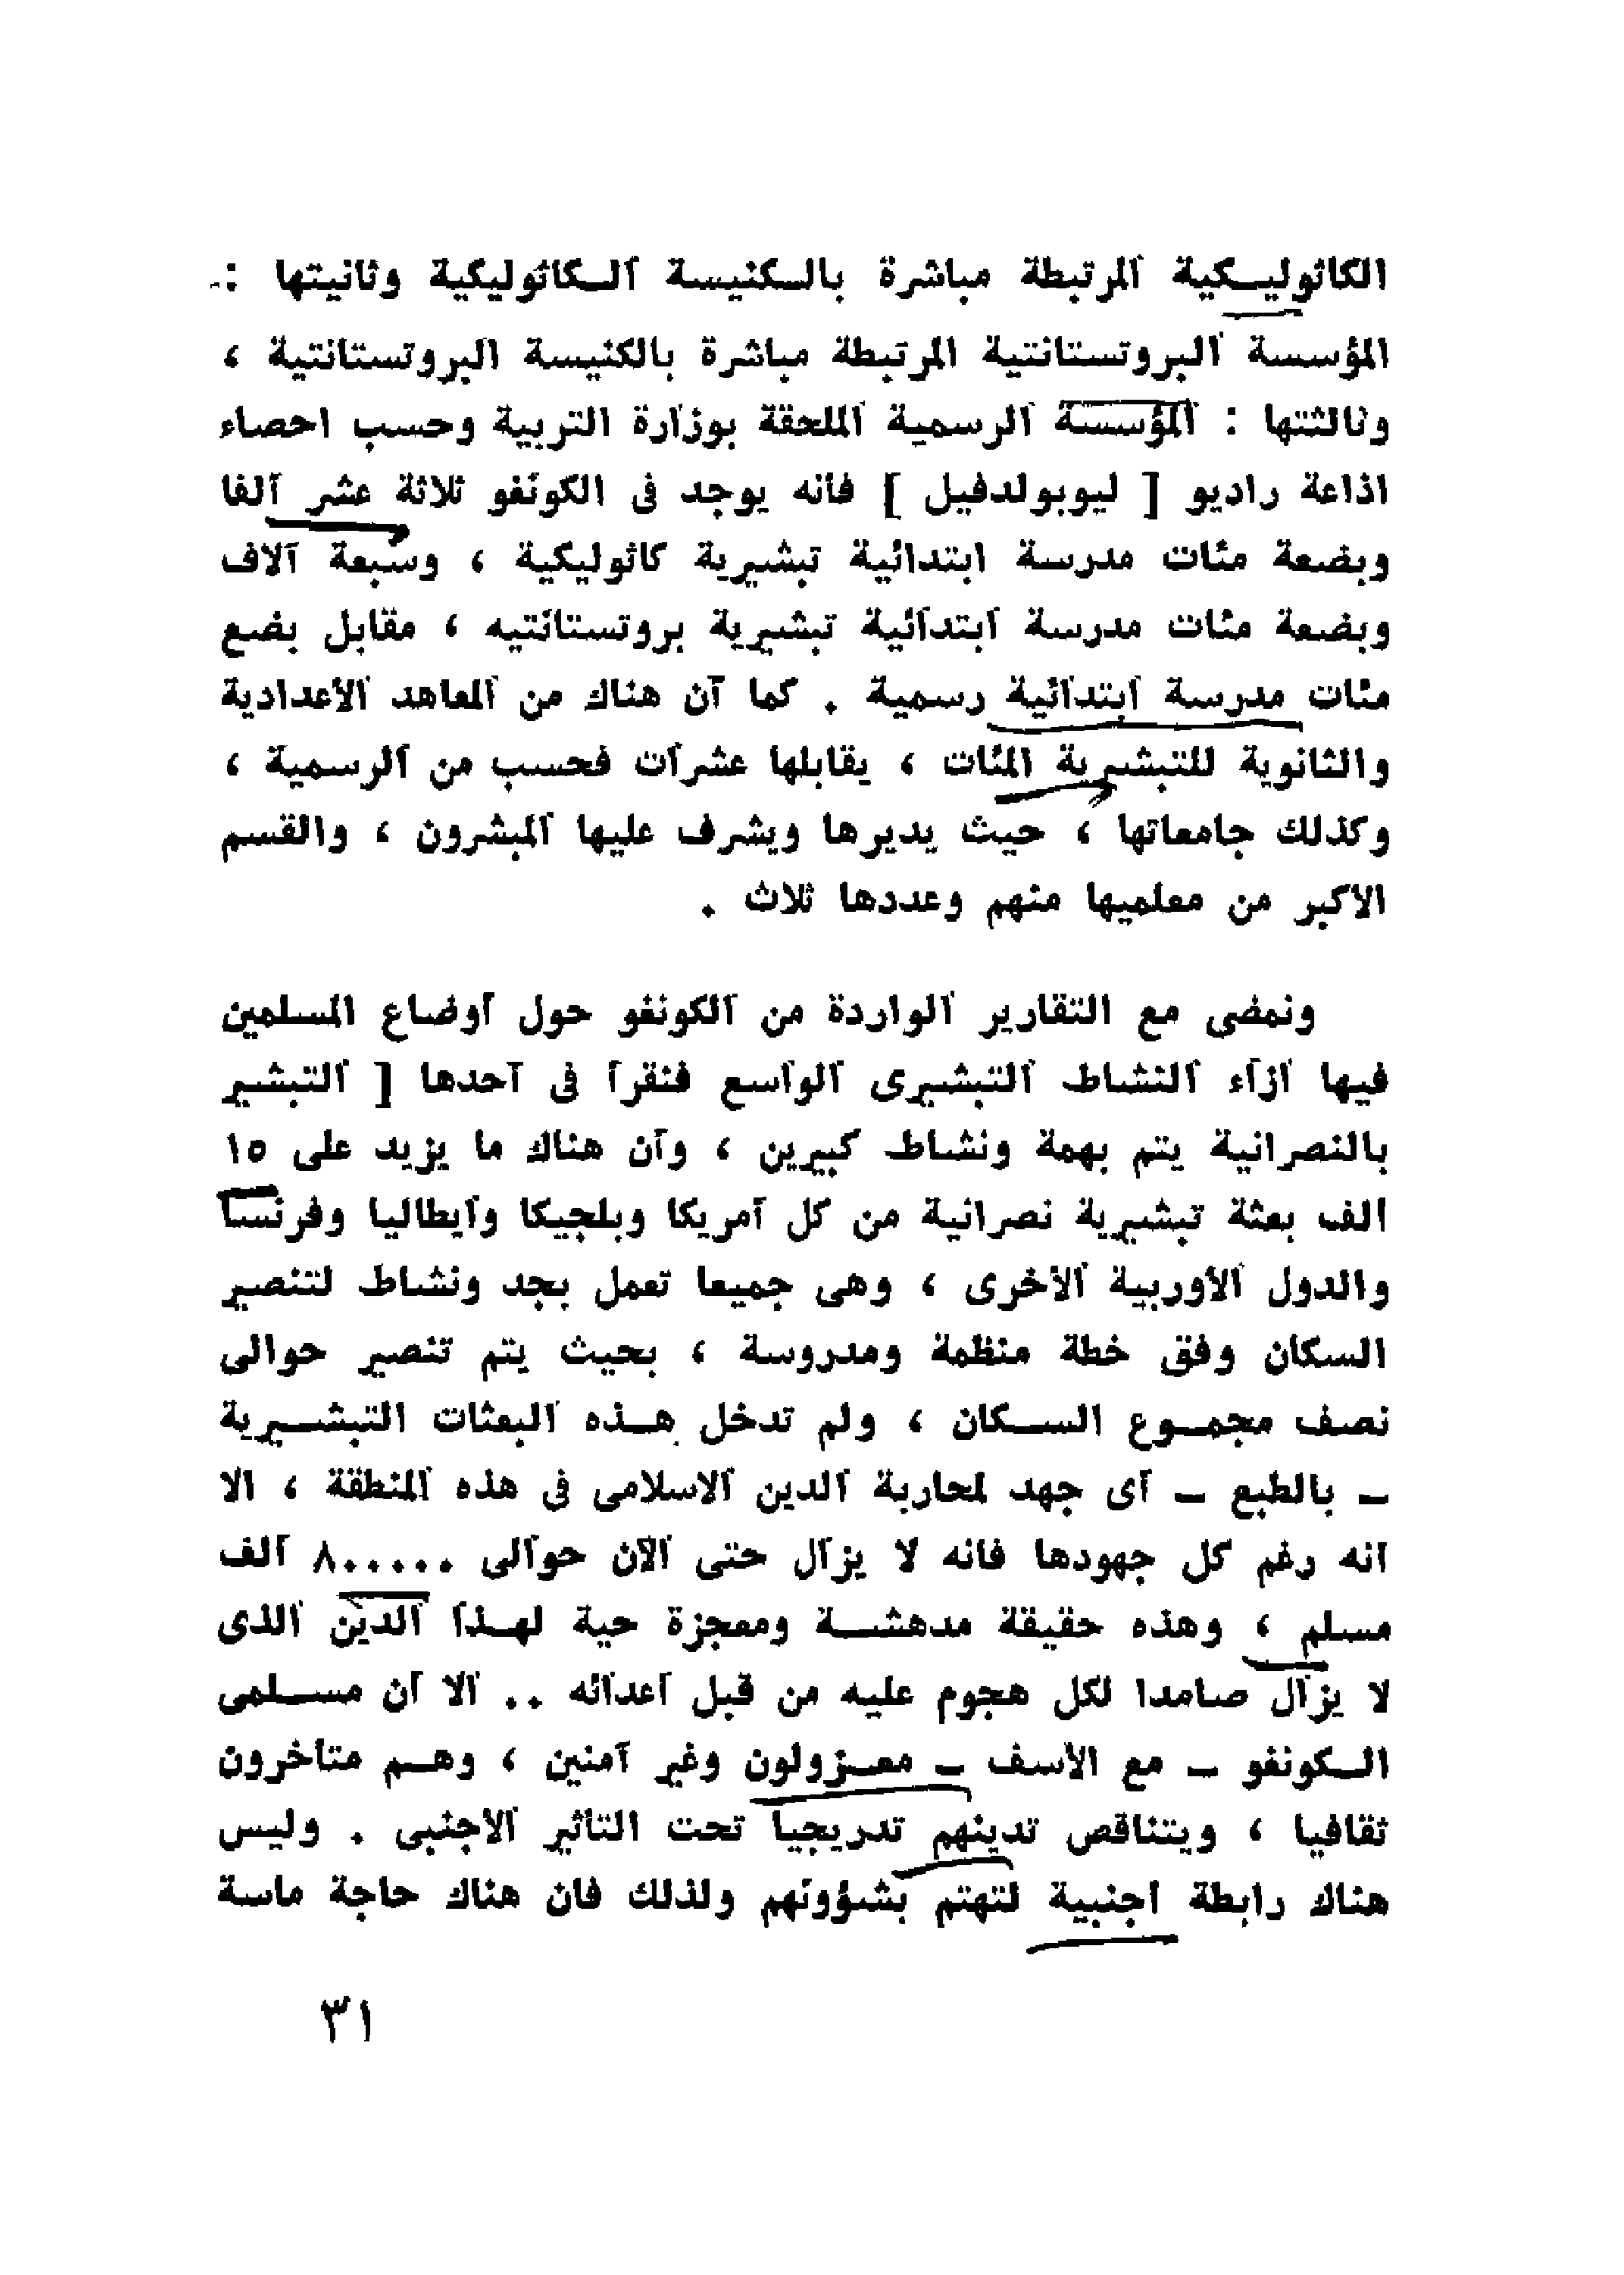 الكاثوليكية المرتبطة مباشرة بالكنيسة الكاثوليكية وثانيتها :
المؤسسة البروتستانتية المرتبطة مباشرة بالكنيسة البروتستانتية ،
وثالثتها : المؤسسة الرسمية الملحقة بوزارة التربية وحسب احصاء
اذاعة راديو [ ليوبولدفيل ] فانه يوجد فى الكونغو ثلاثة عشر ألفا
وبضعة مئات مدرسة ابتدائية تبشيرية كاثوليكية ، وسبعة آلاف
وبضعة مئات مدرسة ابتدائية تبشيرية بروتستانتيه ، مقابل بضع
مئات مدرسة ابتدائية رسمية . كما أن هناك من المعاهد الأعدادية
والثانوية للتبشيرية المئات ، يقابلها عشرات فحسب من الرسمية ،
وكذلك جامعاتها ، حيث يديرها ويشرف عليها المبشرون ، والقسم
الاكبر من معلميها منهم وعددها ثلاث .
ونمضى مع التقارير الواردة من الكونغو حول أوضاع المسلمين
فيها أزاء النشاط التبشيرى الواسع فنقرأ فى أحدها [ التبشير
بالنصرانية يتم بهمة ونشاط كبيرين ، وأن هناك ما يزيد على ١٥
ألف بعثة تبشيرية نصرانية من كل أمريكا وبلجيكا وأيطاليا وفرنسا
والدول الأوربية الأخرى ، وهى جميعا تعمل بجد ونشاط لتنصير
السكان وفق خطة منظمة ومدروسة ، بحيث يتم تنصير حوالى
نصف مجموع السكان ، ولم تدخل هذه البعثات التبشيرية
– بالطبع – أى جهد لمحاربة الدين الاسلامى فى هذه المنطقة ، الا
أنه رغم كل جهودها فانه لا يزال حتى الآن حوالى ٨٠٠٠٠٠ ألف
مسلم ، وهذه حقيقة مدهشة ومعجزة حية لهذا الدين الذى
لا يزال صامدا لكل هجوم عليه من قبل أعدائه .. ألا أن مسلمى
الكونغو – مع الأسف – معزولون وغير آمنين ، وهم متأخرون
ثقافيا ، ويتناقص تدينهم تدريجيا تحت التأثير الأجنبى . وليس
هناك رابطة أجنبية لتهتم بشؤونهم ولذلك فان هناك حاجة ماسة
٣١